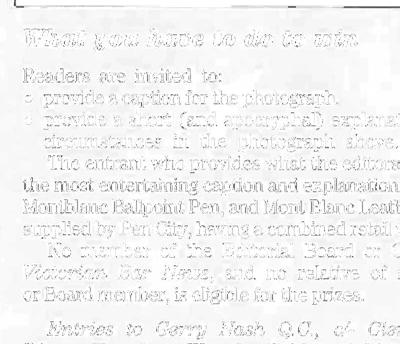 What you have to do to win
Readers are invited to:
○ provide a caption for the photograph.
○ provide a short (and apocryphal) explanat
circumstances in the photograph above.
The entrant who provides what the editors
the most entertaining caption and explanation
Montblanc Ballpoint Pen, and Mont Blanc Leath
supplied by Pen City, having a combined retail
No member of the Editorial Board or
Victorian Bar News, and no relative of
or Board member, is eligible for the prizes.
Entries to Gerry Nash Q.C., c/-